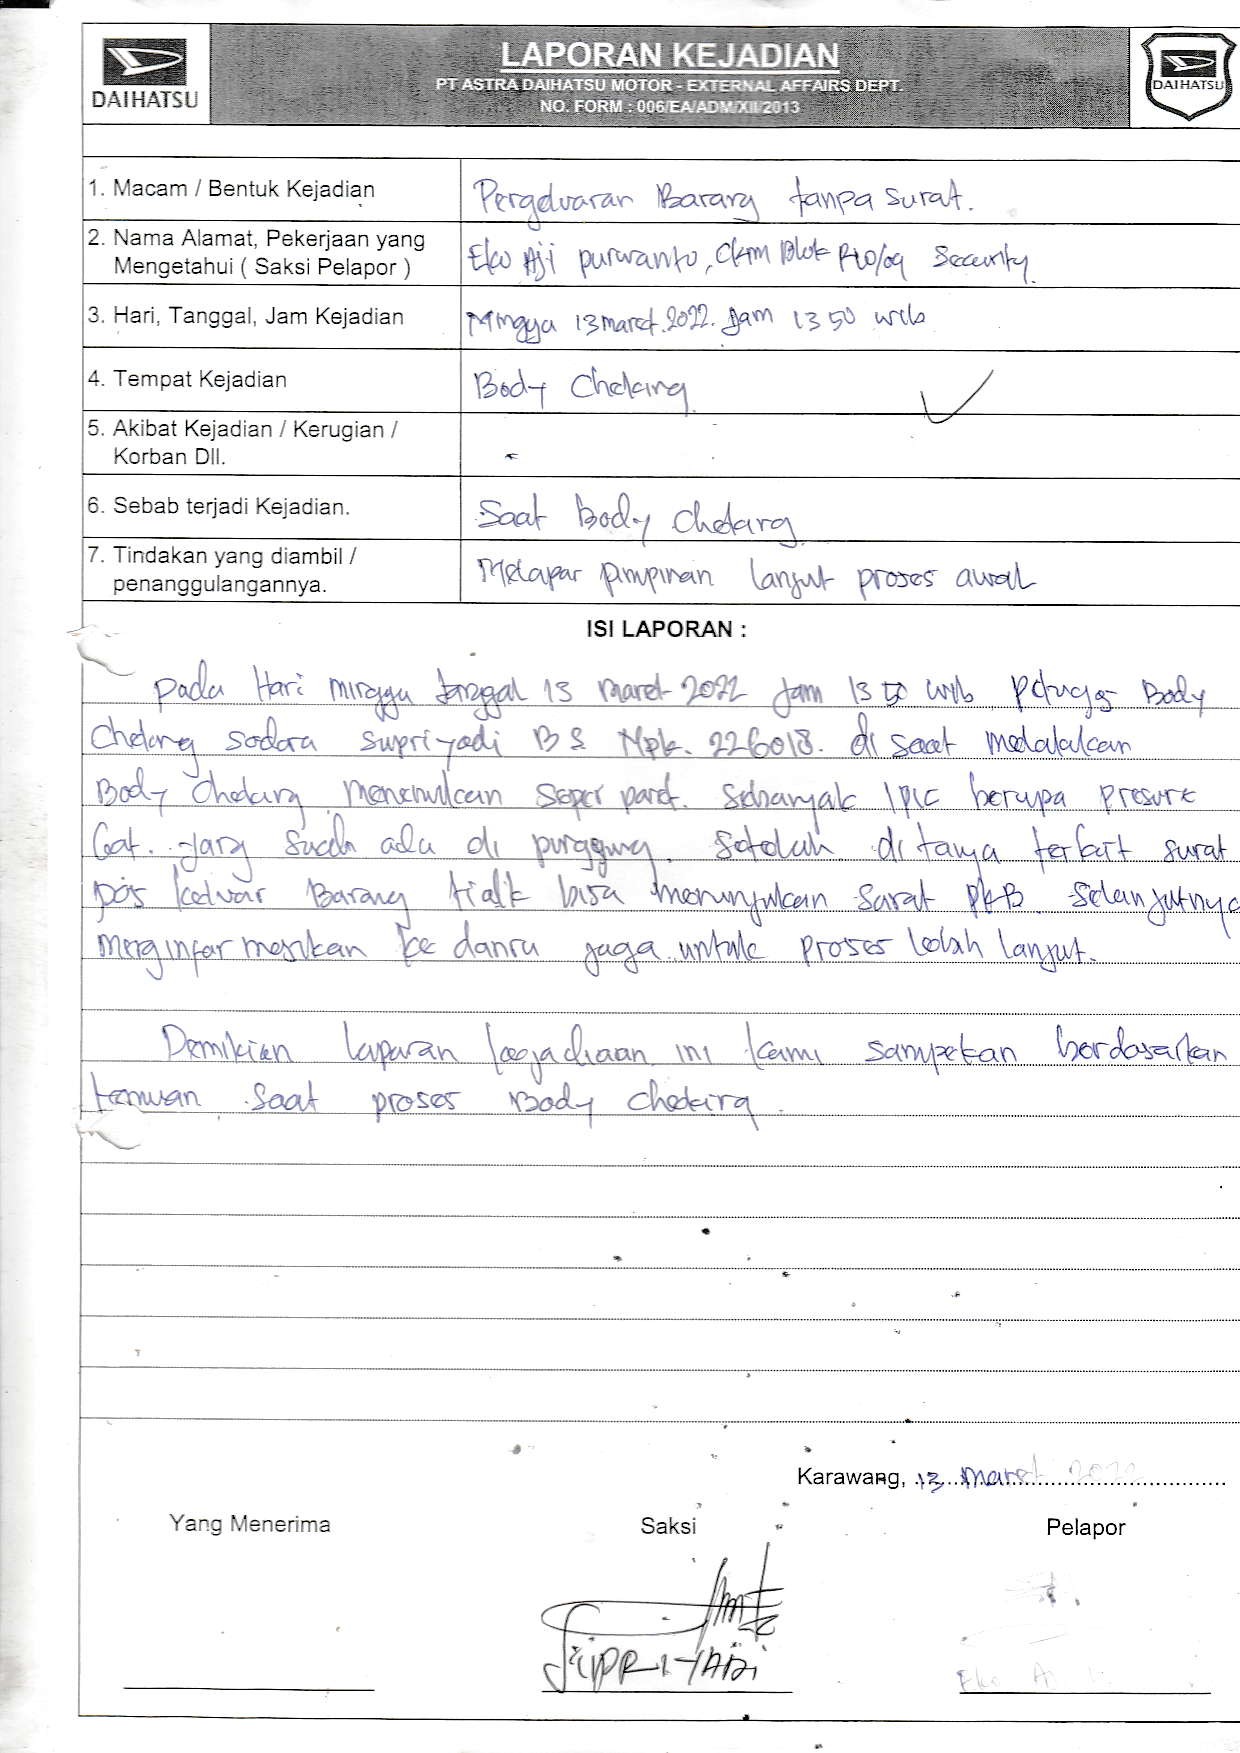 DAIHATSU
LAPORAN KEJADIAN
PT ASTRA DAIHATSU MOTOR - EXTERNAL AFFAIRS DEPT.
NO. FORM : 006/EA/ADM/XII/2013
DAIHATSU
1. Macam / Bentuk Kejadian
Pergeluaran Barang tanpa surat.
2. Nama Alamat, Pekerjaan yang
Mengetahui ( Saksi Pelapor )
Eko Aji purwanto, Ckm Blok P10/09 Security.
3. Hari, Tanggal, Jam Kejadian
Minggu 13 maret. 2022. Jam 13 50 wib
4. Tempat Kejadian
Body Cheking
5. Akibat Kejadian / Kerugian /
Korban Dll.
6. Sebab terjadi Kejadian.
Saat Body Cheking
7. Tindakan yang diambil /
penanggulangannya.
Melapar pimpinan lanjut proses awal
ISI LAPORAN :
pada Hari minggu tanggal 13 maret 2022 Jam 13 50 wib petugas Body
Cheking sodara supriyadi BS Npk. 226018. di saat melalukan
Body cheking menemukan seper part. Sebanyak 1 pic berupa presure
Gat. yang sudah ada di punggung. setelah di tanya terkait surat
pos keluar Barang tidak bisa menunjukan surat PKB. Selanjutnya
menginformasikan ke danru jaga untuk proses lebih lanjut.
Demikian laporan kegadiaan ini kami sampekan berdasarkan
temuan saat proses Body cheking.
Karawang, 13 maret 2022
Yang Menerima
Saksi
Pelapor
SUPRIYADI
Eko A